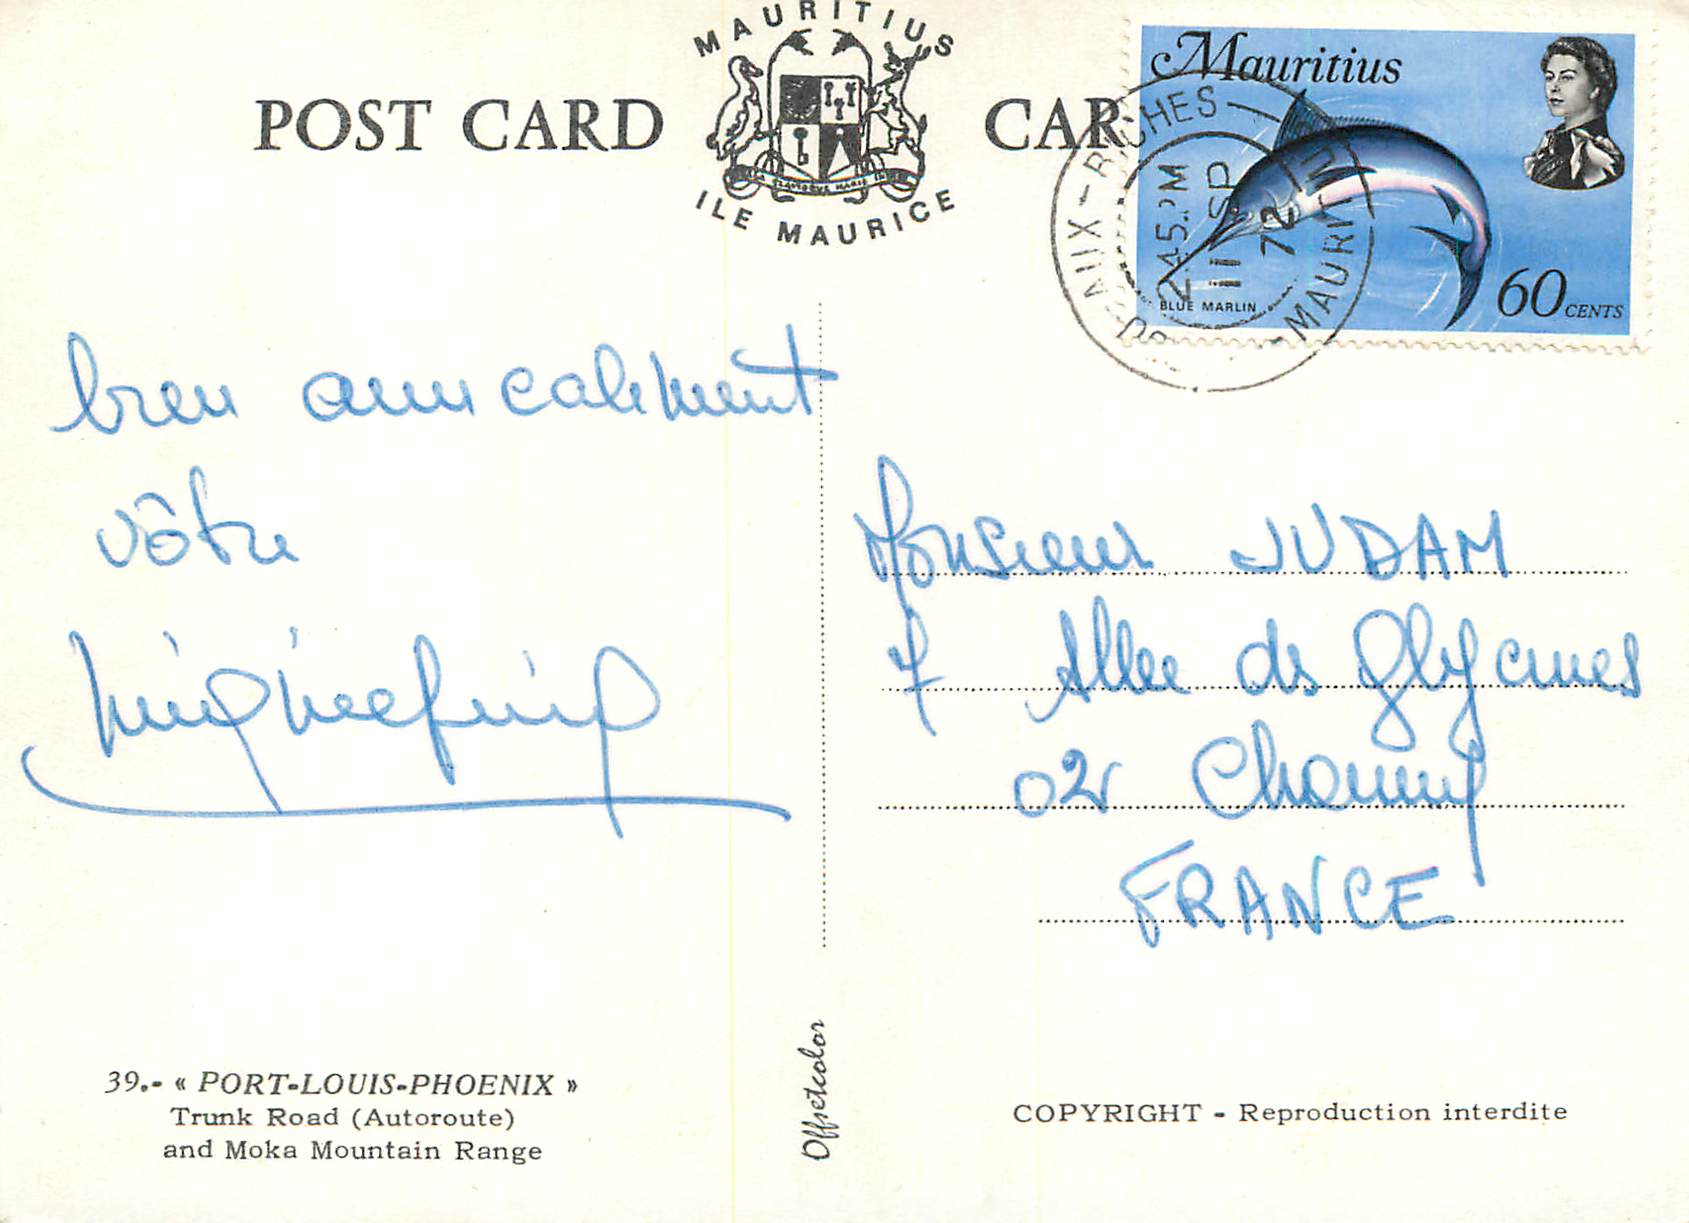 MAURITIUS
POST CARD
CAR
ILE MAURICE
Mauritius
BLUE MARLIN
60 CENTS
2.45.PM
11 SP
72
MAURITIUS
bien amicalement
vôtre
Monsieur JUDAM
7 Allée des Glycines
02 Chauny
FRANCE
39.- « PORT-LOUIS-PHOENIX »
Trunk Road (Autoroute)
and Moka Mountain Range
Offsetcolor
COPYRIGHT - Reproduction interdite